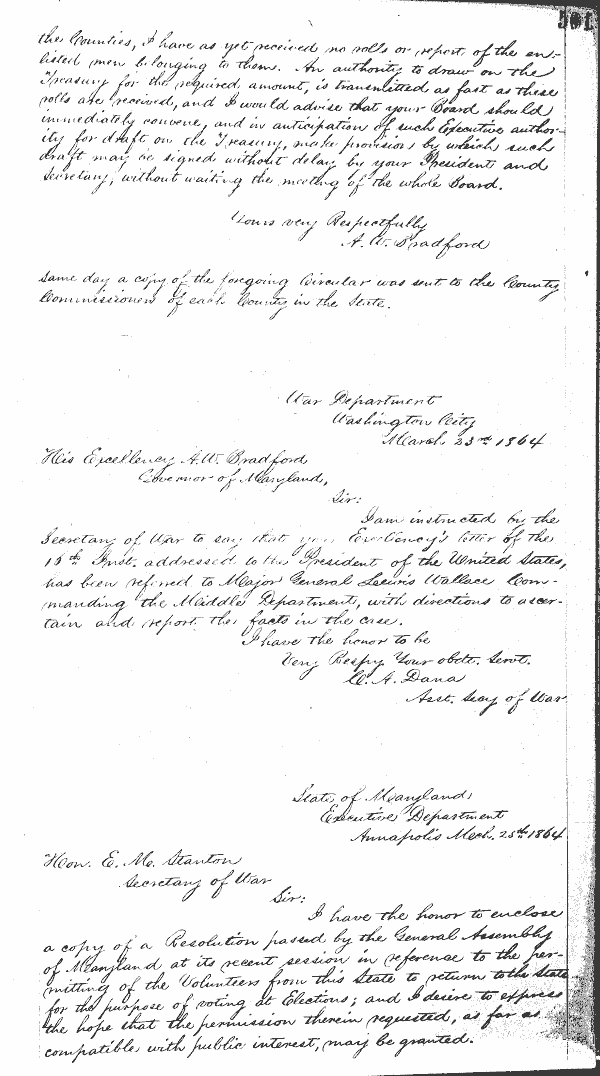 501
the Counties, I have as yet received no rolls or report of the en-
listed men belonging to them. An authority to draw on the
Treasury for the required amount, is transmitted as fast as these
rolls are received, and I would advise that your Board should
immediately convene, and in anticipation of such Executive author-
ity for draft on the Treasury, make provision by which such
draft may be signed without delay by your President and
Secretary, without waiting the meeting of the whole Board.
Yours very Respectfully
A. W. Bradford
Same day a copy of the foregoing Circular was sent to the County
Commissioners of each County in the State.
War Department
Washington City
March 23rd 1864
His Excellency A. W. Bradford
Governor of Maryland,
Sir:
I am instructed by the
Secretary of War to say that your Excellency's letter of the
15th Inst. addressed to the President of the United States,
has been referred to Major General Lewis Wallace Com-
manding the Middle Department, with directions to ascer-
tain and report the facts in the case.
I have the honor to be
Very Respy Your obdt. Servt.
C. A. Dana
Asst. Secy of War
State of Maryland
Executive Department
Annapolis Mch. 25th 1864
Hon. E. M. Stanton
Secretary of War
Sir:
I have the honor to enclose
a copy of a Resolution passed by the General Assembly
of Maryland at its recent session in reference to the per-
mitting of the Volunteers from this State to return to the State
for the purpose of voting at Elections; and I desire to express
the hope that the permission therein requested, as far as
compatible with public interest, may be granted.